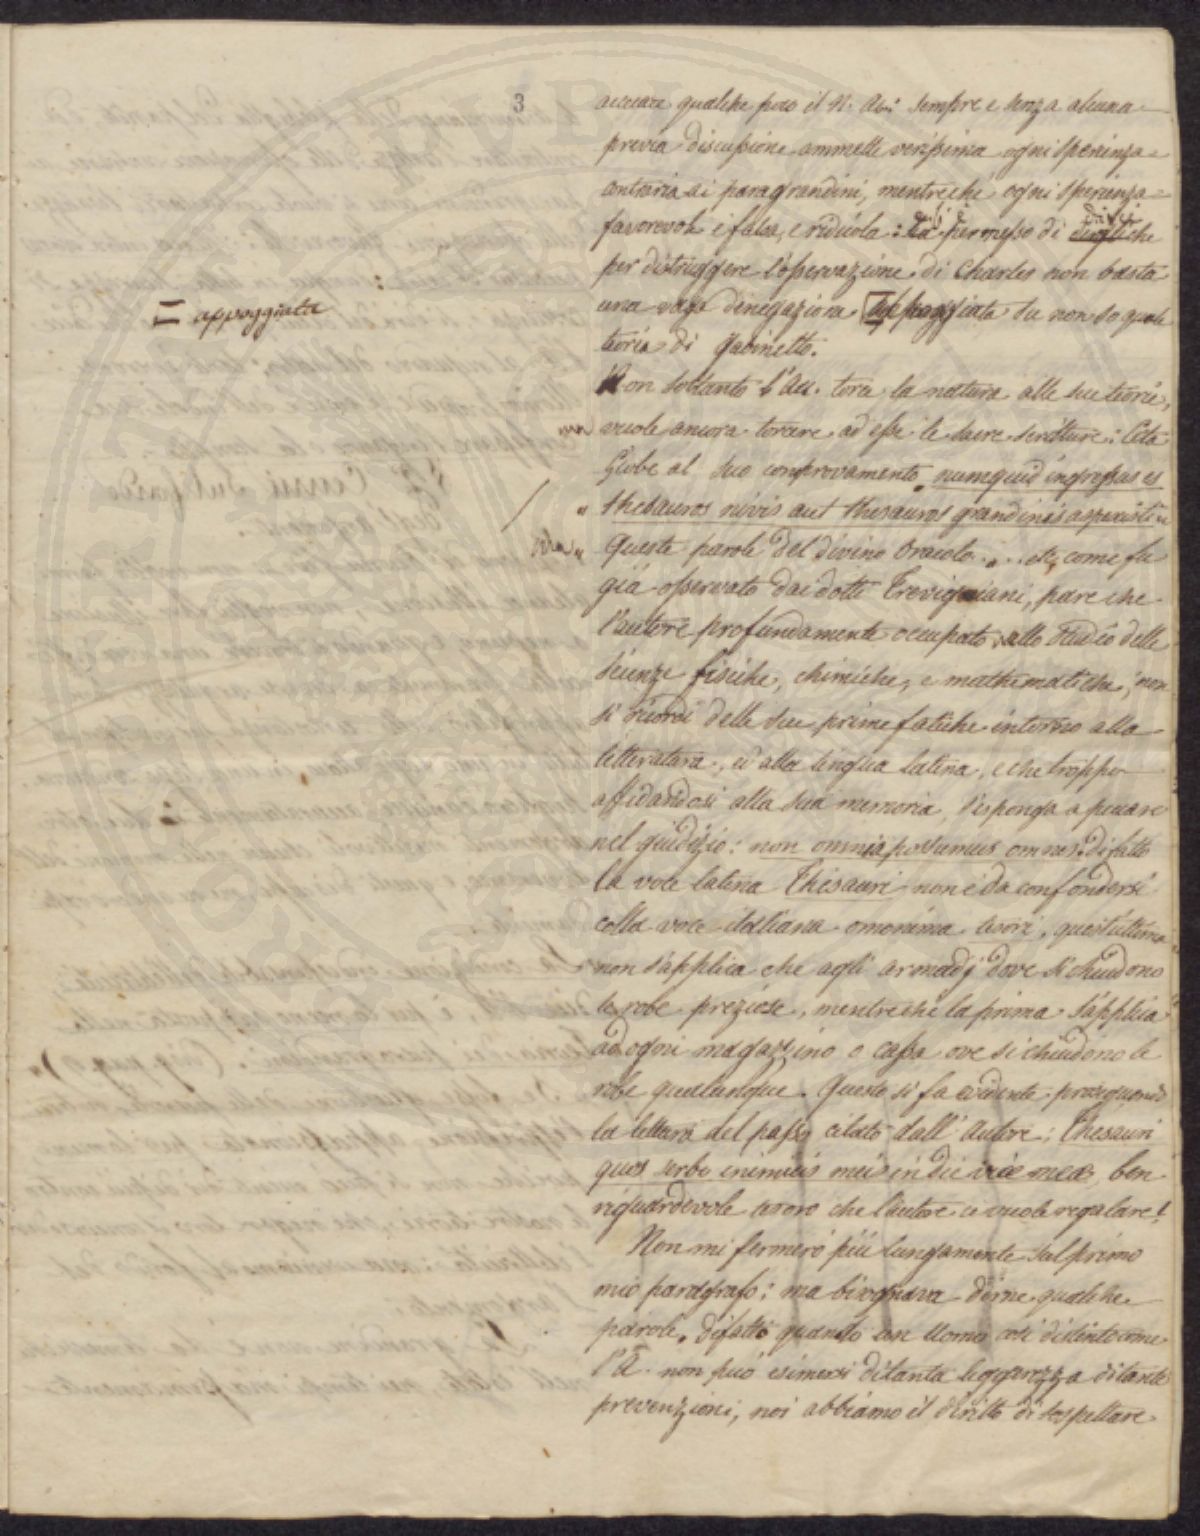 3
accecare qualche poco il N. Au: sempre e senza alcuna
previa discussione ammette verissima ogni sperienza
contraria ai paragrandini, mentreché ogni sperienza
favorevole è falsa, e ridicola: permesso di dirgli che
per distruggere l'osservazione di Charles non basta
una vaga denegaziona appoggiata su non so quale
= appoggiata
teoria di gabinetto.
Non soltanto l'Au. torce la natura alle sue teorie,
ma vuole ancora torcere ad esse le sacre scritture: Cita
Giobe al suo comprovamento numquid ingressus es
" thesauros nivis aut thesauros grandinis aspexisti "
Queste parole del divino Oracolo.... etc, come fu
già osservato dai dotti Trevigniani, pare che
l'autore profundamente occupato allo studio delle
scienze fisiche, chimiche, e mathematiche, non
si ricordi delle sue prime fatiche intorno alla
letteratura, ed alla lingua latina, e che troppo
affidandosi alla sua memoria, s'esponga a peccare
nel giudizio: non omnia possumus omnes. difatto
la voce latina Thesauri non è da confondersi
colla voce italiana omonima tesori, quest'ultima
non s'applica che agli armadj dove si chiudono
le robe preziose, mentreché la prima s'applica
ad ogni magazzino o cassa ove si chiudono le
robe qualunque. Questo si fa evidente proseguendo
la lettura del passo citato dall'Autore: Thesauri
quos servo inimicis meis in die irae meae, ben
riguardevole tesoro che l'autore ci vuole regalare!
Non mi fermeró piú lungamente sul primo
mio paragrafo: ma bisognava dirne qualche
parole. difatti quando un Uomo così distinto come
l'A. non può esimersi di tanta leggerezza di tante
prevenzioni, noi abbiamo il diritto di sospettare